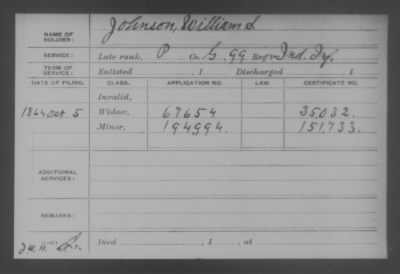 NAME OF SOLDIER: Johnson, William S.
SERVICE: Late rank, P Co. G, 99 Reg't Ind. Inf.
TERM OF SERVICE: Enlisted , 1 Discharged , 1
DATE OF FILING. CLASS. APPLICATION NO. LAW. CERTIFICATE NO.
Invalid,
1864 Oct 5 Widow, 67654 35032.
Minor, 194994. 151,733.
ADDITIONAL SERVICES:
REMARKS:
Died , 1 , at